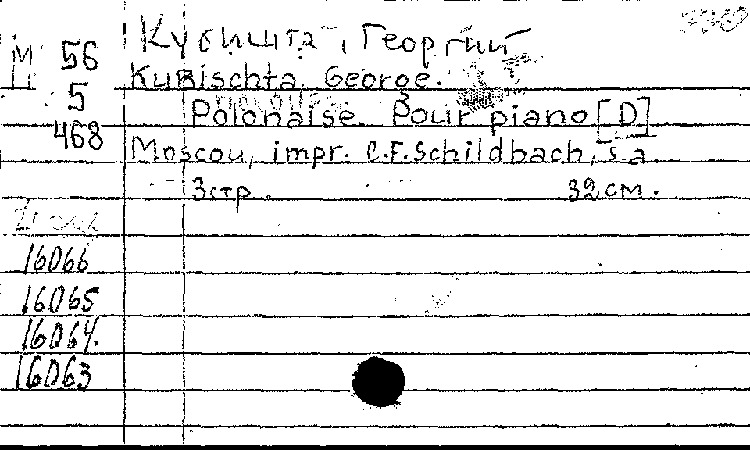 М 56
5
468
Кубишта, Георгий
Kubischta, George.
Polonaise. Pour piano [D]
Moscou, impr. C.F. Schildbach, s.a
3 стр. 32 см.
16066
16065
16064.
16063